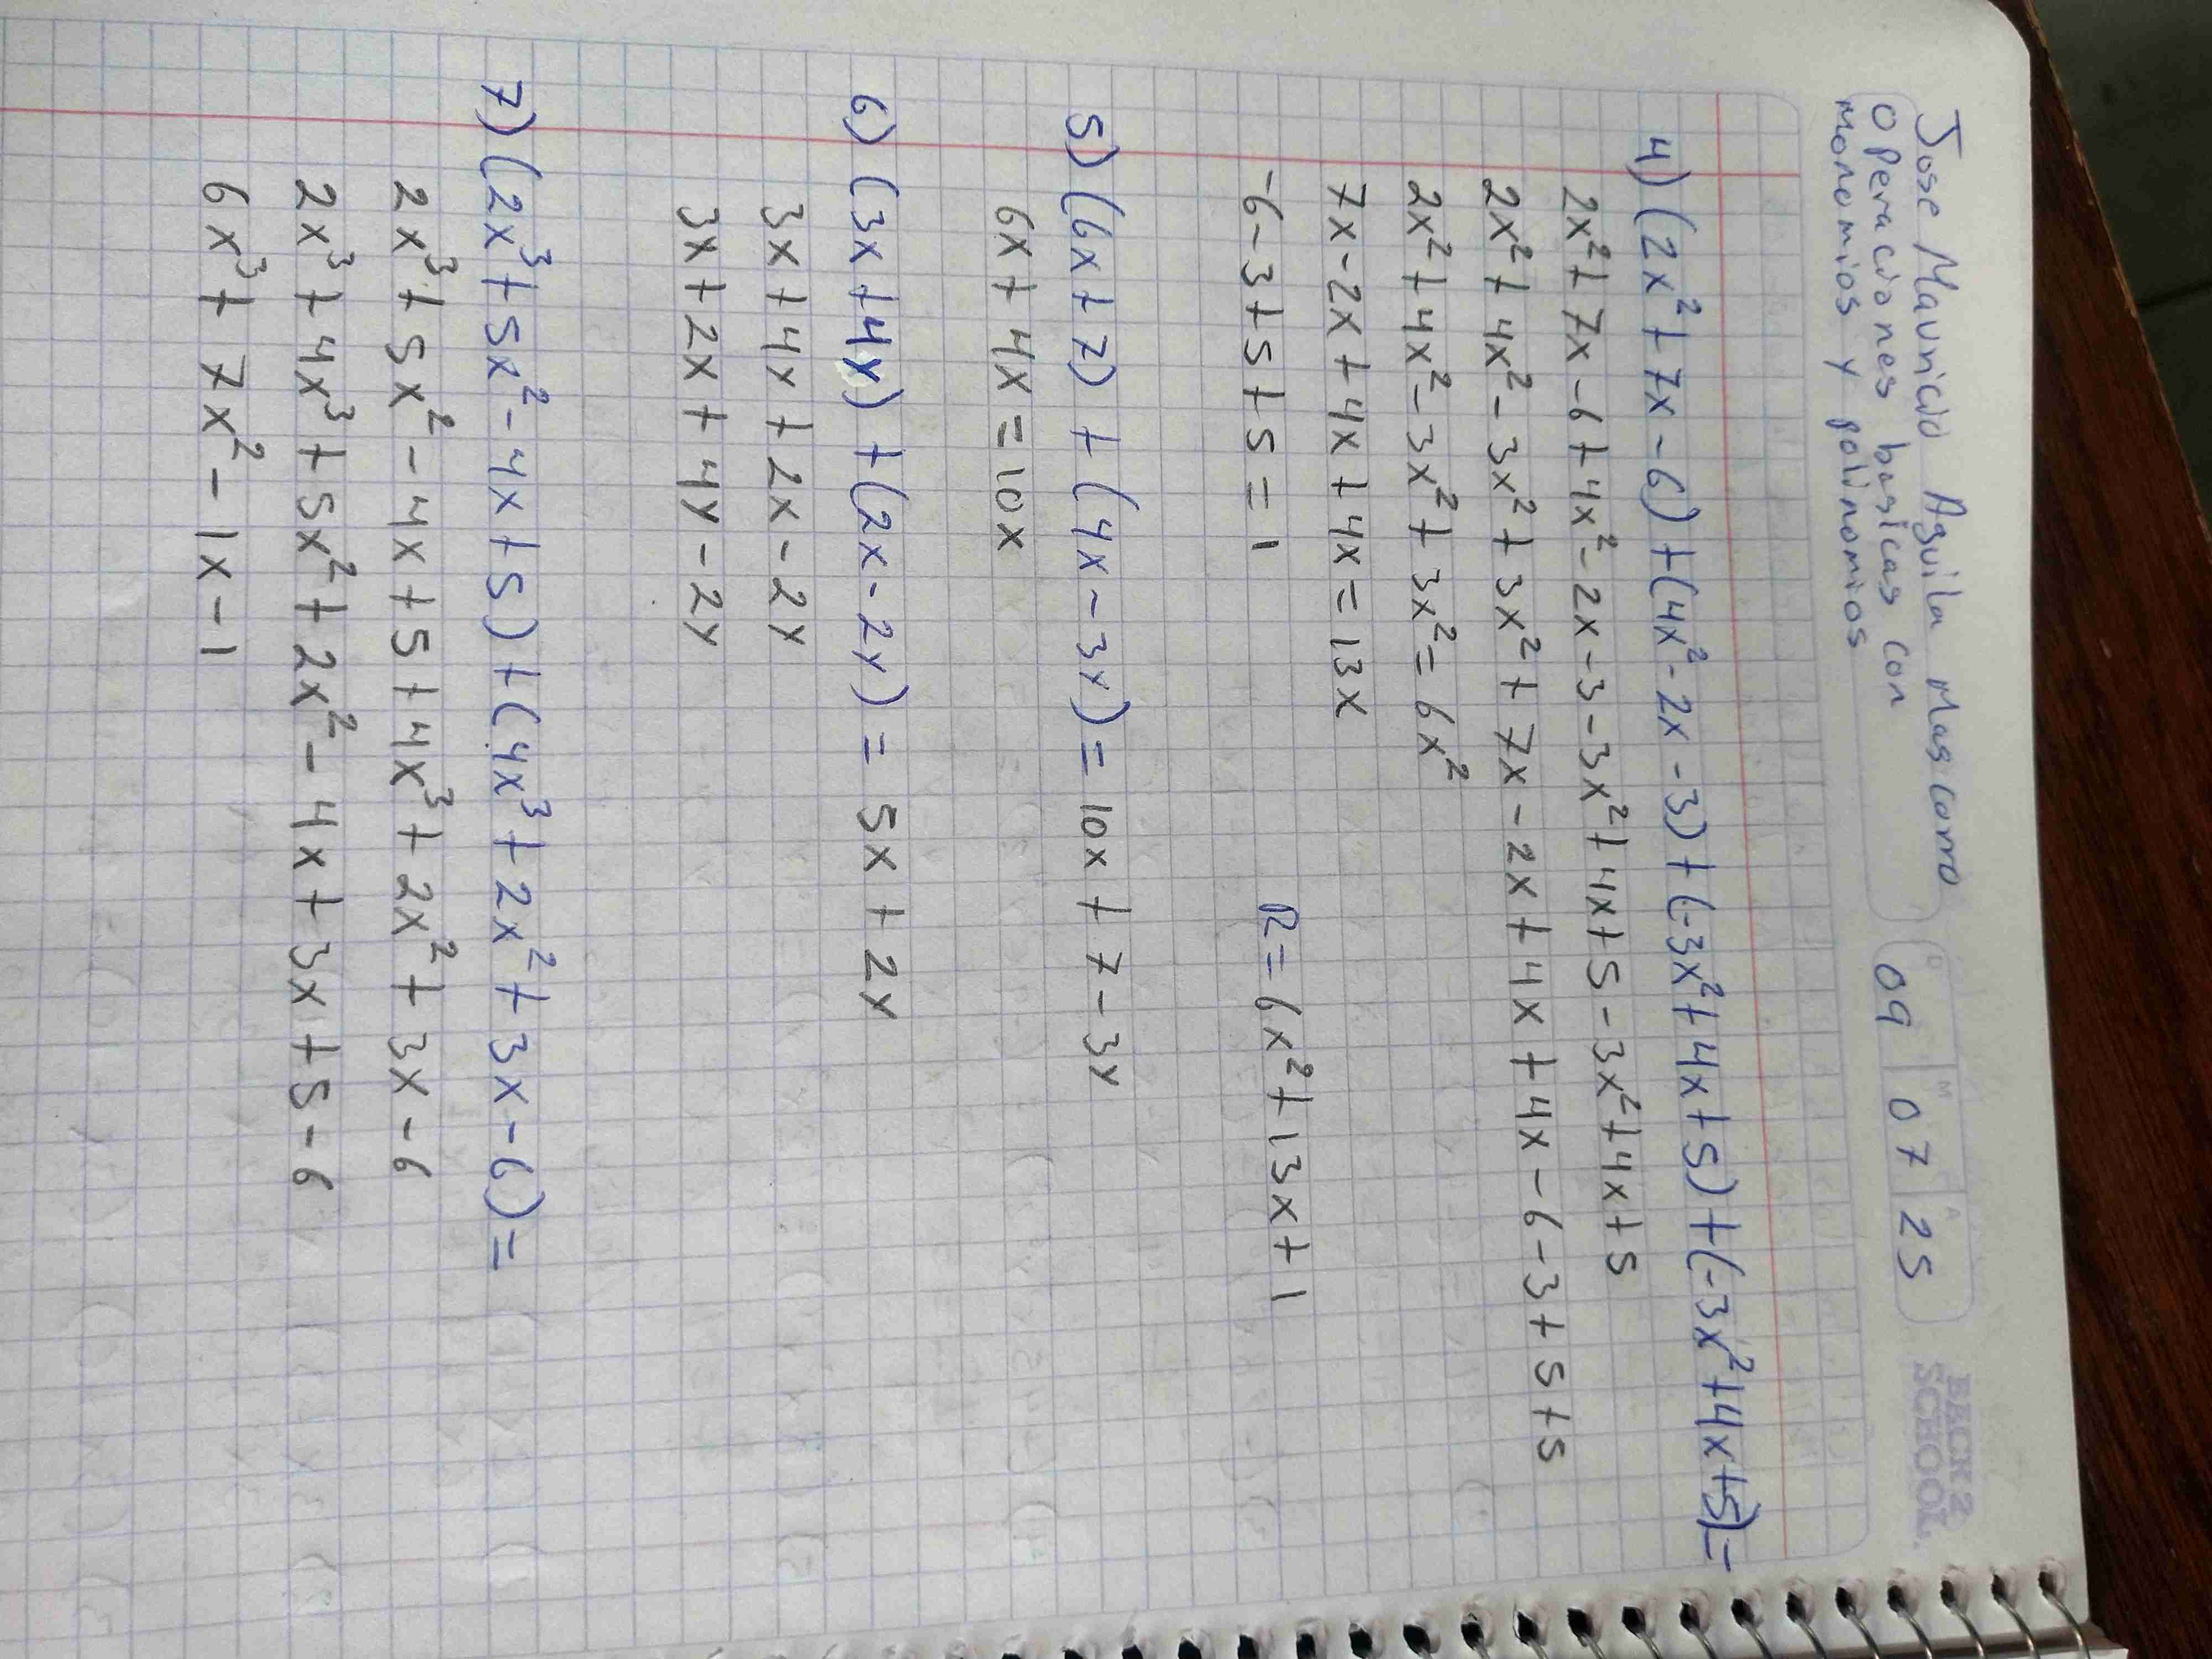 Jose Mauricio Aguila Mascarro
Operaciones basicas con
monomios y polinomios
D M A
09 07 25
BECK 2
SCHOOL
4) (2x²+7x-6)+(4x²-2x-3)+(-3x²+4x+5)+(-3x²+4x+5)=
2x²+7x-6+4x²-2x-3-3x²+4x+5-3x²+4x+5
2x²+4x²-3x²+3x²+7x-2x+4x+4x-6-3+5+5
2x²+4x²-3x²+3x²=6x²
7x-2x+4x+4x=13x
-6-3+5+5=1 R=6x²+13x+1
5) (6x+7)+(4x-3y)=10x+7-3y
6x+4x=10x
6) (3x+4y)+(2x-2y)=5x+2y
3x+4y+2x-2y
3x+2x+4y-2y
7) (2x³+5x²-4x+5)+(4x³+2x²+3x-6)=
2x³+5x²-4x+5+4x³+2x²+3x-6
2x³+4x³+5x²+2x²-4x+3x+5-6
6x³+7x²-1x-1